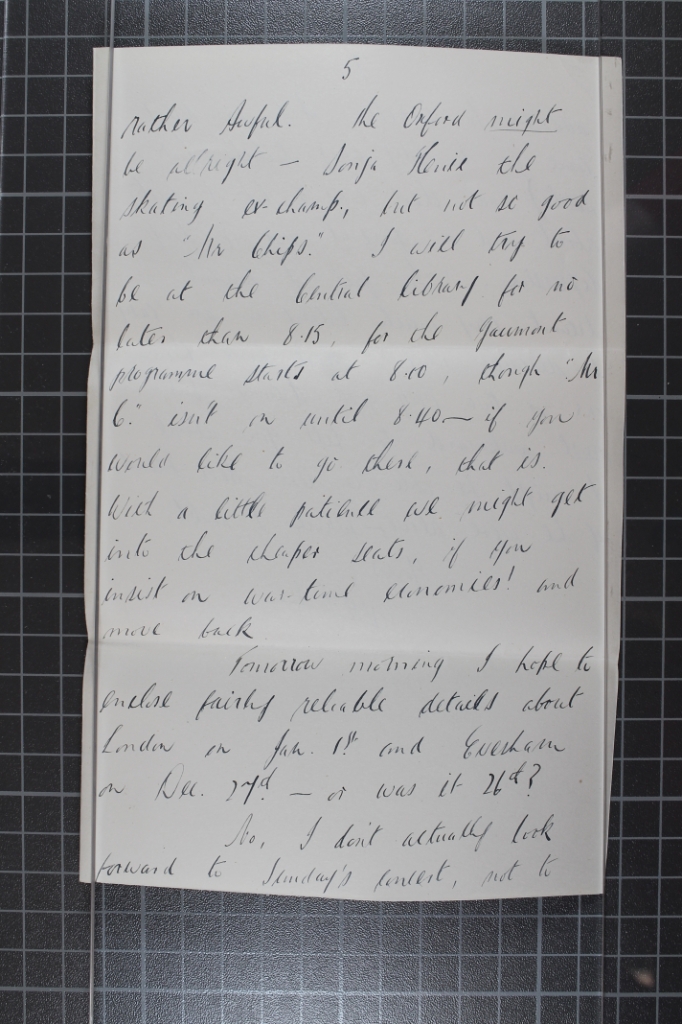 5
rather Awful. The Oxford might
be alright — Sonja Henie the
skating ex-champ., but not so good
as "Mr Chips." I will try to
be at the Central Library for no
later than 8.15, for the Gaumont
programme starts at 8.00, though "Mr
C." isn't on until 8.40 — if you
would like to go there, that is.
With a little patience we might get
into the cheaper seats, if you
insist on war-time economies! and
move back
Tomorrow morning I hope to
enclose fairly reliable details about
London on Jan. 1st and Evesham
on Dec. 27th. — or was it 26th?
No, I don't actually look
forward to Sunday's concert, not to